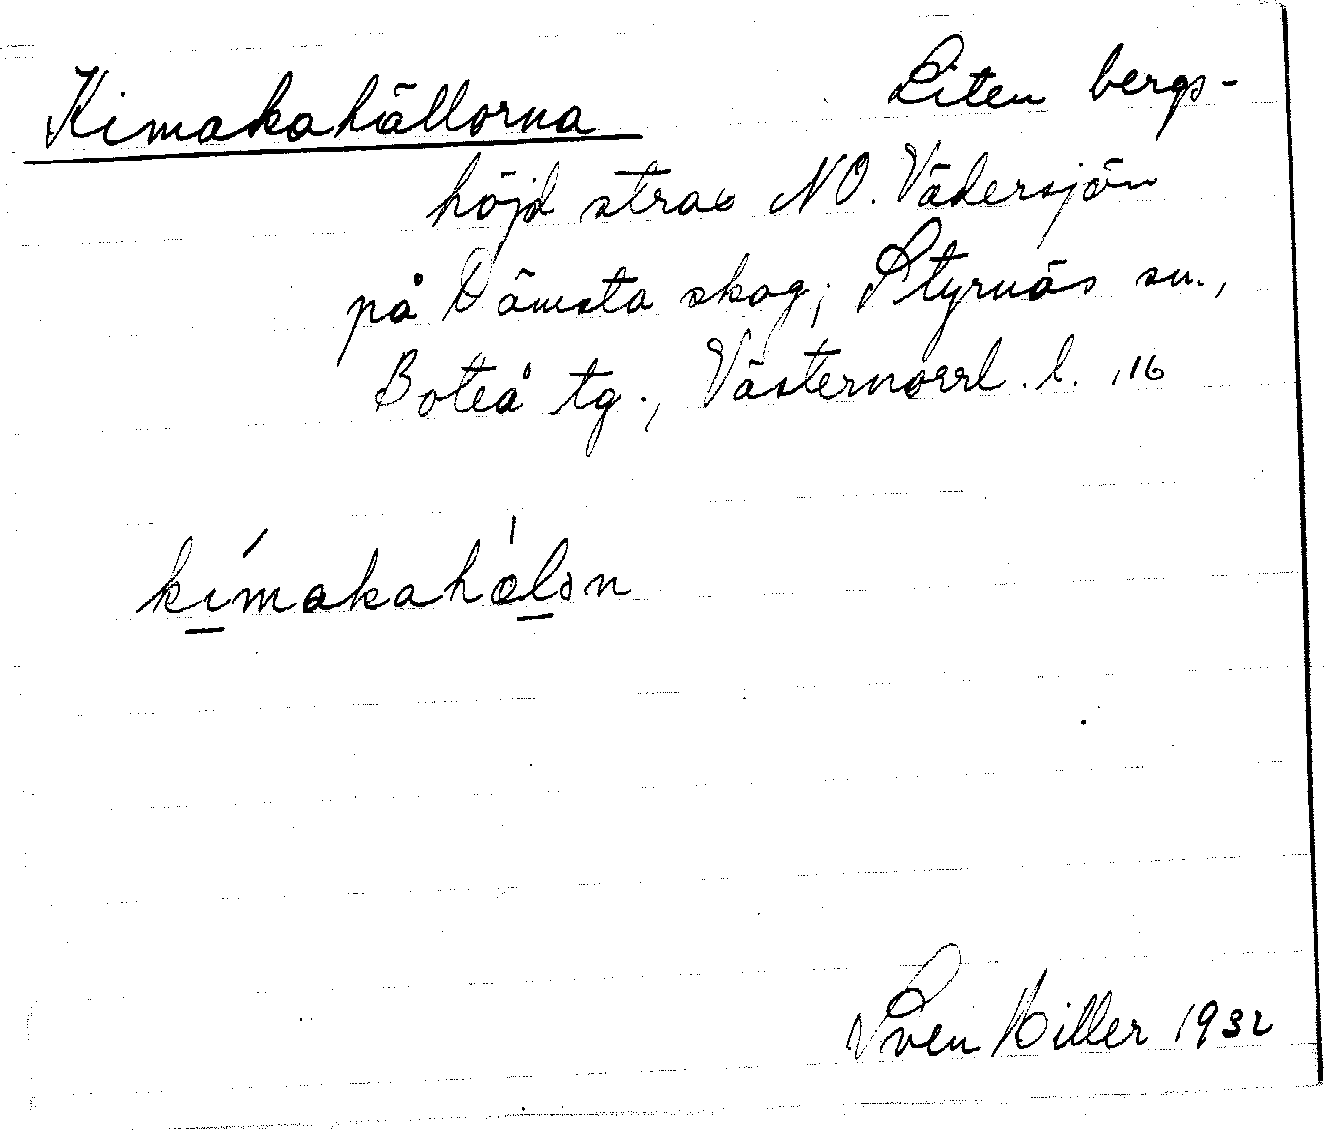 Kimakahällorna Liten bergs-
höjd strax NO. Vädersjön
på Dämsta skog; Styrnäs sn.,
Boteå tg., Västernorrl. l. , 16
kímakahǽlən
Sven Hiller 1932